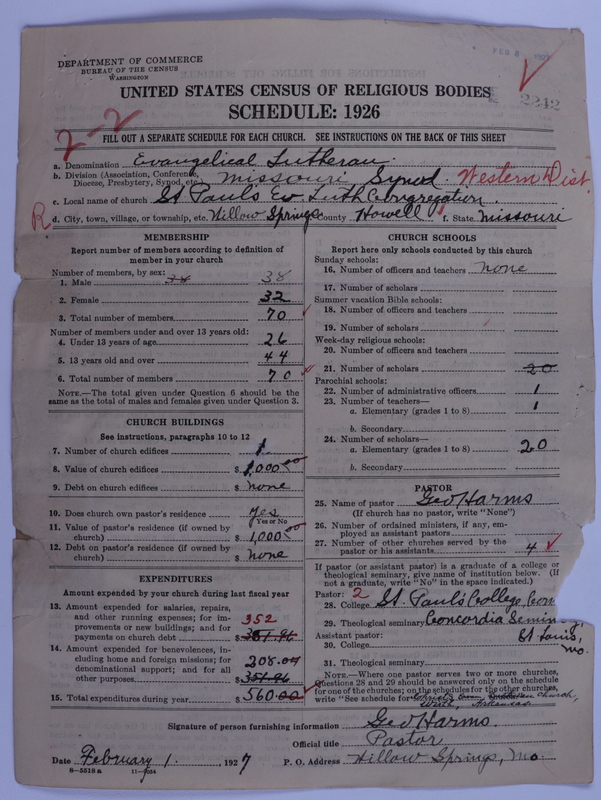 FEB 8 1927
DEPARTMENT OF COMMERCE
BUREAU OF THE CENSUS
WASHINGTON
UNITED STATES CENSUS OF RELIGIOUS BODIES
2242
SCHEDULE: 1926
2-2
FILL OUT A SEPARATE SCHEDULE FOR EACH CHURCH. SEE INSTRUCTIONS ON THE BACK OF THIS SHEET
a. Denomination Evangelical Lutheran
b. Division (Association, Conference, Diocese, Presbytery, Synod, etc.) Missouri Synod Western Dist.
c. Local name of church St Pauls Ev Luth Congregation.
R d. City, town, village, or township, etc. Willow Springs County Howell f. State Missouri
MEMBERSHIP
Report number of members according to definition of
member in your church
Number of members, by sex:
1. Male 38
2. Female 32
3. Total number of members 70
Number of members under and over 13 years old:
4. Under 13 years of age 26
5. 13 years old and over 44
6. Total number of members 70
NOTE.—The total given under Question 6 should be
same as the total of males and females given under Question 3.
CHURCH BUILDINGS
See instructions, paragraphs 10 to 12
7. Number of church edifices 1
8. Value of church edifices $ 1,000.00
9. Debt on church edifices $ none
10. Does church own pastor's residence yes
Yes or No
11. Value of pastor's residence (if owned by
church) $ 1,000.00
12. Debt on pastor's residence (if owned by
church) $ none
EXPENDITURES
Amount expended by your church during last fiscal year
13. Amount expended for salaries, repairs,
and other running expenses; for im-
provements or new buildings; and for
payments on church debt $ 351.96 352
14. Amount expended for benevolences, in-
cluding home and foreign missions; for
denominational support; and for all
other purposes $ 351.96 208.04
15. Total expenditures during year $ 560.00
CHURCH SCHOOLS
Report here only schools conducted by this church
Sunday schools:
16. Number of officers and teachers none
17. Number of scholars
Summer vacation Bible schools:
18. Number of officers and teachers
19. Number of scholars
Week-day religious schools:
20. Number of officers and teachers
21. Number of scholars 20
Parochial schools:
22. Number of administrative officers 1
23. Number of teachers—
a. Elementary (grades 1 to 8) 1
b. Secondary
24. Number of scholars—
a. Elementary (grades 1 to 8) 20
b. Secondary
PASTOR
25. Name of pastor Geo Harms
(If church has no pastor, write "None")
26. Number of ordained ministers, if any, em-
ployed as assistant pastors
27. Number of other churches served by the
pastor or his assistants 4
If pastor (or assistant pastor) is a graduate of a college or
theological seminary, give name of institution below. (If
not a graduate, write "No" in the space indicated.)
Pastor: 2
28. College St. Paul's College, Con
29. Theological seminary Concordia Semin
St Louis,
Mo.
Assistant pastor:
30. College
31. Theological seminary
NOTE.—Where one pastor serves two or more churches,
Questions 28 and 29 should be answered only on the schedule
for one of the churches; on the schedules for the other churches,
write "See schedule for church,
Arkansas
Signature of person furnishing information Geo Harms.
Official title Pastor
Date February 1. 1927 P. O. Address Willow Springs, Mo.
8—5518 a 11—9054